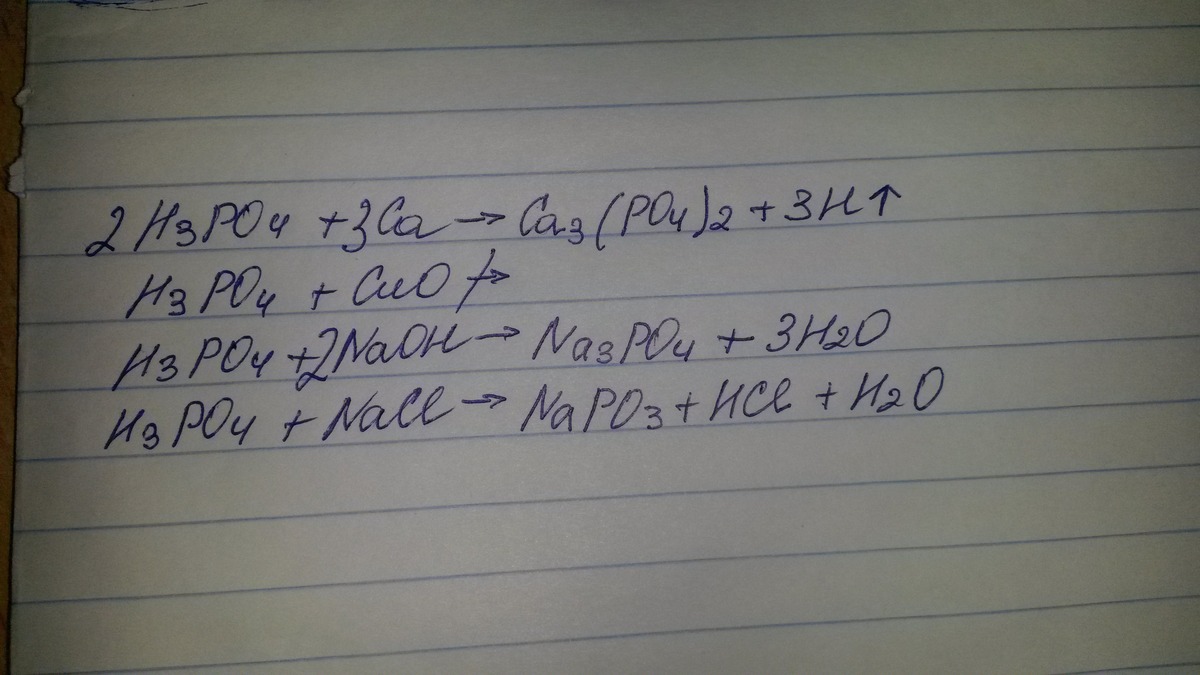 2 H₃PO₄ + 3Ca → Ca₃(PO₄)₂ + 3H↑
H₃PO₄ + CuO ↛
H₃PO₄ + 2NaOH → Na₃PO₄ + 3H₂O
H₃PO₄ + NaCl → NaPO₃ + HCl + H₂O